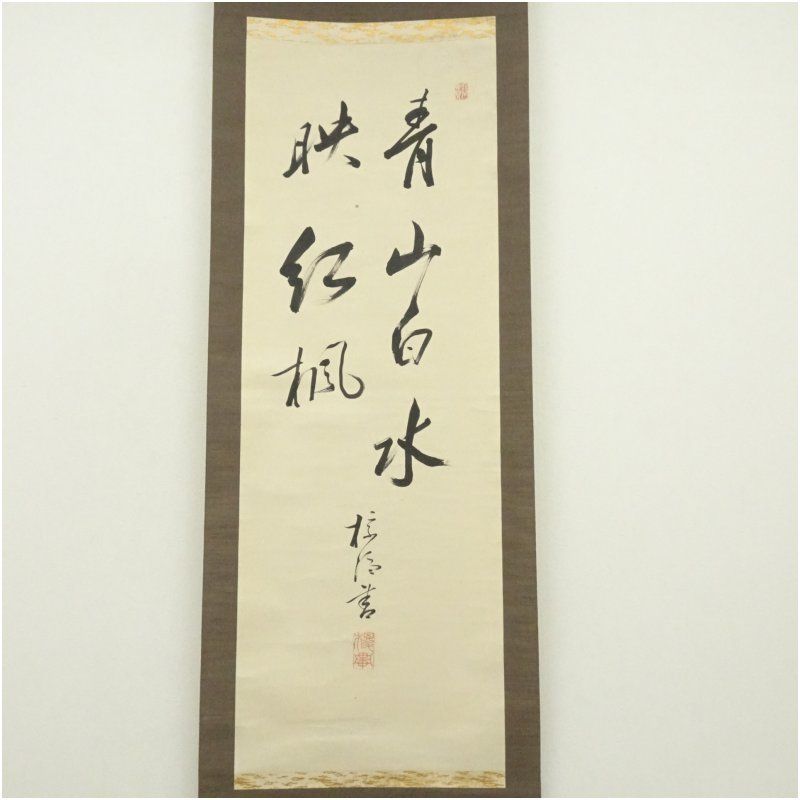 青山白水
映紅楓